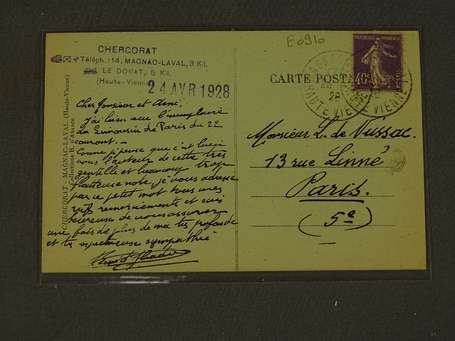 E0910
CHERCORAT
Téléph.: 14, MAGNAC-LAVAL, 3 Kil.
LE DORAT, 8 Kil.
(Haute-Vienne)
24 AVR 1928
CARTE POSTALE
40c
Cher Monsieur et Ami,
J'ai bien reçu l'exemplaire
La Semaine de Paris du 22
courant.
Comme je pense que c'est
vous l'auteur de cette très
gentille et beaucoup trop
flatteuse note, je vous adresse
par ce petit mot tous mes
vifs remerciements et suis
heureuse de vous assurer
une fois de plus de ma très profonde
et très respectueuse sympathie
Monsieur L. de Nussac
13 rue Linné
Paris.
(5e)
CHERCORAT - MAGNAC-LAVAL (Haute-Vienne)